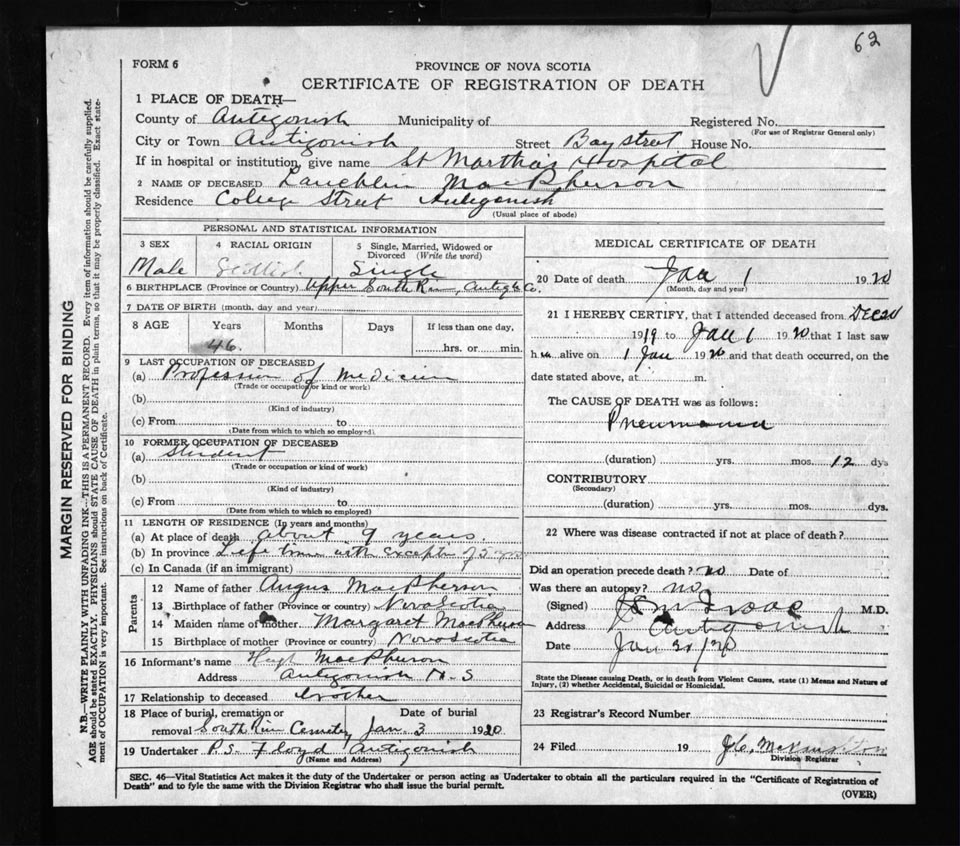 62
FORM 6
PROVINCE OF NOVA SCOTIA
CERTIFICATE OF REGISTRATION OF DEATH
1 PLACE OF DEATH—
County of Antigonish Municipality of Registered No.
(For use of Registrar General only)
City or Town Antigonish Street Bay street House No.
If in hospital or institution, give name St Martha's Hospital
2 NAME OF DECEASED Lauchlin MacPherson
Residence College Street Antigonish
(Usual place of abode)
PERSONAL AND STATISTICAL INFORMATION
3 SEX 4 RACIAL ORIGIN 5 Single, Married, Widowed or Divorced (Write the word)
Male Scottish Single
6 BIRTHPLACE (Province or Country) Upper South River, Antig. Co.
7 DATE OF BIRTH (month, day and year)
8 AGE Years Months Days If less than one day,
46 hrs. or min.
9 LAST OCCUPATION OF DECEASED
(a) Profession of medicine
(Trade or occupation or kind or work)
(b)
(Kind of industry)
(c) From to
(Date from which to which so employed)
10 FORMER OCCUPATION OF DECEASED
(a) Student
(Trade or occupation or kind of work)
(b)
(Kind of industry)
(c) From to
(Date from which to which so employed)
11 LENGTH OF RESIDENCE (In years and months)
(a) At place of death about 9 years.
(b) In province Life time with exceptn of 5 yrs
(c) In Canada (if an immigrant)
Parents
12 Name of father Angus MacPherson
13 Birthplace of father (Province or country) Nova Scotia
14 Maiden name of mother Margaret MacPherson
15 Birthplace of mother (Province or country) Nova Scotia
16 Informant's name Hugh MacPherson
Address Antigonish N.S.
17 Relationship to deceased brother
18 Place of burial, cremation or Date of burial
removal South River Cemetery Jan. 3 1920
19 Undertaker P.S. Floyd Antigonish
(Name and Address)
MEDICAL CERTIFICATE OF DEATH
20 Date of death Jan 1 1920
(Month, day and year)
21 I HEREBY CERTIFY, that I attended deceased from Dec
1919 to Jan 1 1920 that I last saw
him alive on 1 Jan 1920 and that death occurred, on the
date stated above, at m.
The CAUSE OF DEATH was as follows:
Pneumonia
(duration) yrs. mos. 12 dys
CONTRIBUTORY
(Secondary)
(duration) yrs. mos. dys.
22 Where was disease contracted if not at place of death?
Did an operation precede death? no Date of
Was there an autopsy? no
(Signed) M.D.
Address Antigonish
Date Jan
State the Disease causing Death, or in death from Violent Causes, state (1) Means and Nature of
Injury, (2) whether Accidental, Suicidal or Homicidal.
23 Registrar's Record Number
24 Filed 19
Division Registrar
SEC. 46—Vital Statistics Act makes it the duty of the Undertaker or person acting as Undertaker to obtain all the particulars required in the "Certificate of Registration of
Death" and to fyle the same with the Division Registrar who shall issue the burial permit.
(OVER)
MARGIN RESERVED FOR BINDING
N.B.—WRITE PLAINLY WITH UNFADING INK—THIS IS A PERMANENT RECORD. Every item of information should be carefully supplied.
AGE should be stated EXACTLY. PHYSICIANS should STATE CAUSE OF DEATH in plain terms, so that it may be properly classified. Exact statement of OCCUPATION is very important. See instructions on back of Certificate.